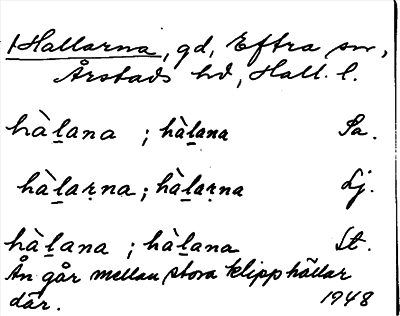 1 Hallarna, gd, Eftra sn,
Årstads hd, Hall. l.
hàḻana ; hàḻana Sa.
hàḻaṛna ; hàḻaṛna Lj.
hàḻana ; hàḻana St.
Ån går mellan stora klipphällar
där. 1948